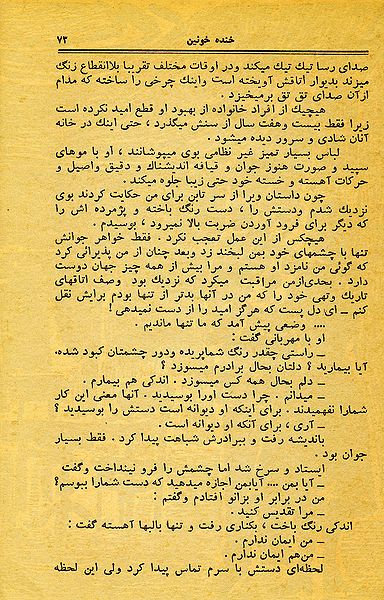 خنده خونین ۷۳
صدای رسا تیک تیک میکند ودر اوقات مختلف تقریبا بلاانقطاع زنگ
میزند بدیوار اتاقش آویخته است واینک چرخی را ساخته که مدام
ازآن صدای تق تق برمیخیزد .
هیچیک از افراد خانواده از بهبود او قطع امید نکرده است
زیرا فقط بیست وهفت سال از سنش میگذرد ، حتی اینک در خانه
آنان شادی و سرور دیده میشود .
لباس بسیار تمیز غیر نظامی بوی میپوشانند ، او با موهای
سپید و صورت هنوز جوان و قیافه اندیشناک و دقیق واصیل و
حرکات آهسته و خسته خود حتی زیبا جلوه میکند .
چون داستان ویرا از سر تابن برای من حکایت کردند بوی
نزدیک شدم ودستش را ، دست رنگ باخته و پژمرده اش را
که دیگر برای فرود آوردن ضربت بالا نمیرود ، بوسیدم .
هیچکس از این عمل تعجب نکرد . فقط خواهر جوانش
تنها با چشمهای خود بمن لبخند زد وبعد چنان از من پذیرائی کرد
که گوئی من نامزد او هستم و مرا بیش از همه چیز جهان دوست
دارد . بحدی‌ازمن مراقبت میکرد که نزدیک بود وصف اتاقهای
تاریک وتهی خود را که من در آنها بدتر از تنها بودم برایش نقل
کنم ــ ای دل پست که هرگز امید را از دست نمیدهی !
.... وضعی پیش آمد که ما تنها ماندیم .
او با مهربانی گفت :
ــ راستی چقدر رنگ شماپریده ودور چشمتان کبود شده .
آیا بیمارید ؟ دلتان بحال برادرم میسوزد ؟
ــ دلم بحال همه کس میسوزد . اندکی هم بیمارم .
ــ میدانم . چرا دست اورا بوسیدید . آنها معنی این کار
شمارا نفهمیدند . برای اینکه او دیوانه است دستش را بوسیدید ؟
ــ آری ، برای آنکه او دیوانه است .
باندیشه رفت و ببرادرش شباهت پیدا کرد . فقط بسیار
جوان بود .
ایستاد و سرخ شد اما چشمش را فرو نینداخت وگفت
ــ آیا بمن .... آیابمن اجازه میدهید که دست شمارا ببوسم ؟
من در برابر او بزانو افتادم وگفتم :
ــ مرا تقدیس کنید .
اندکی رنگ باخت ، بکناری رفت و تنها بالبها آهسته گفت :
ــ من ایمان ندارم .
ــ من‌هم ایمان ندارم .
لحظه‌ای دستش با سرم تماس پیدا کرد ولی این لحظه